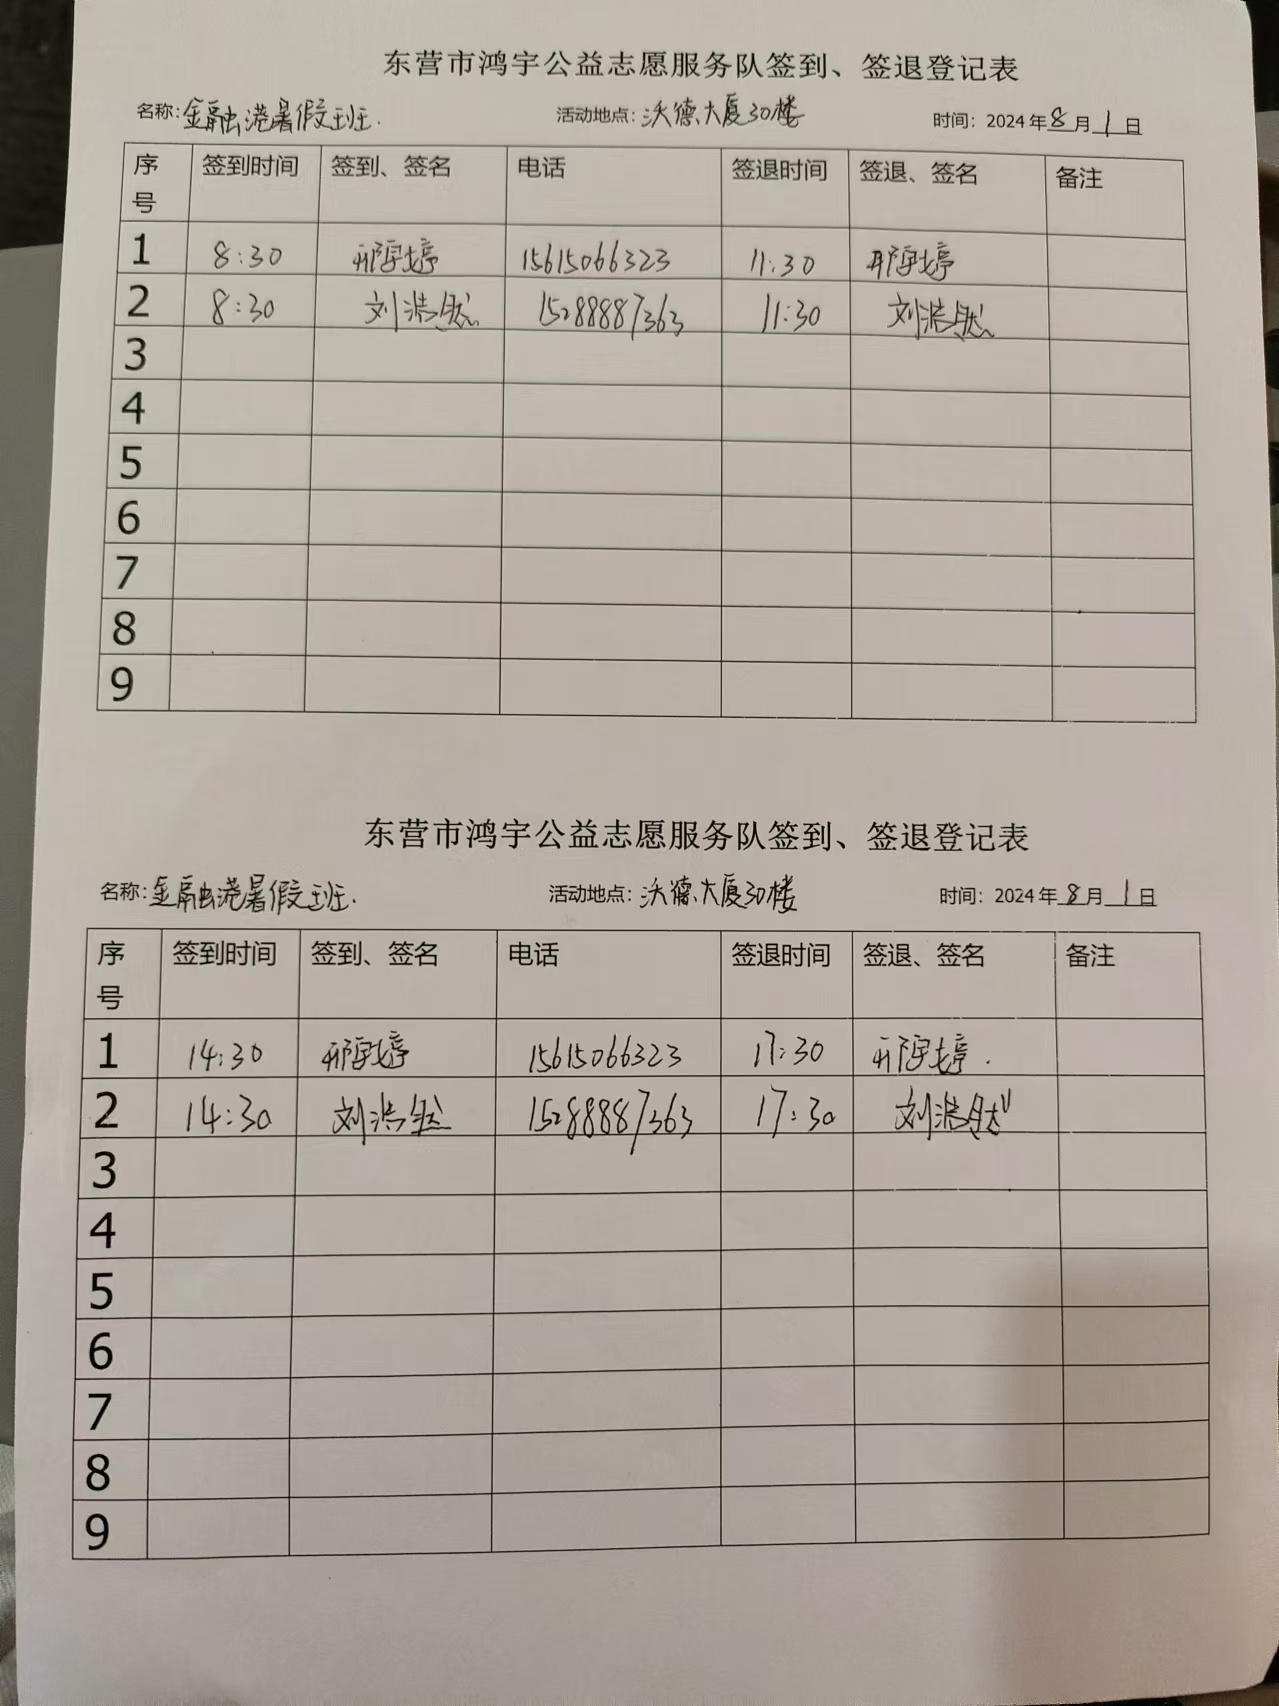 东营市鸿宇公益志愿服务队签到、签退登记表
名称：金融港暑假班. 活动地点：沃德大厦30楼 时间：2024年8月1日
序号 签到时间 签到、签名 电话 签退时间 签退、签名 备注
1 8:30 邢宇婷 15615066323 11:30 邢宇婷
2 8:30 刘浩然 15288887363 11:30 刘浩然
3
4
5
6
7
8
9
东营市鸿宇公益志愿服务队签到、签退登记表
名称：金融港暑假班. 活动地点：沃德大厦30楼 时间：2024年8月1日
序号 签到时间 签到、签名 电话 签退时间 签退、签名 备注
1 14:30 邢宇婷 15615066323 17:30 邢宇婷.
2 14:30 刘浩然 15288887363 17:30 刘浩然
3
4
5
6
7
8
9